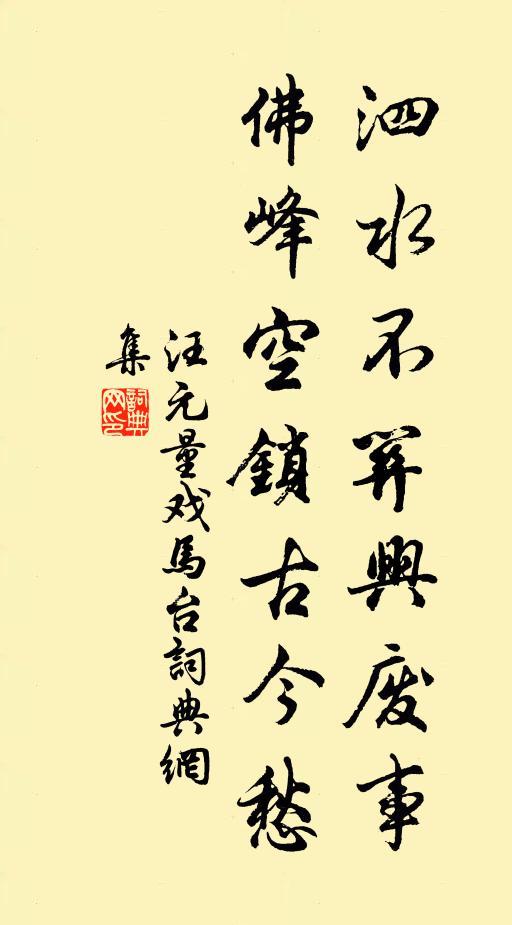 泗水不關興废事
佛峰空鎖古今愁
汪元量戏馬台詞典網
集
詞典
网印